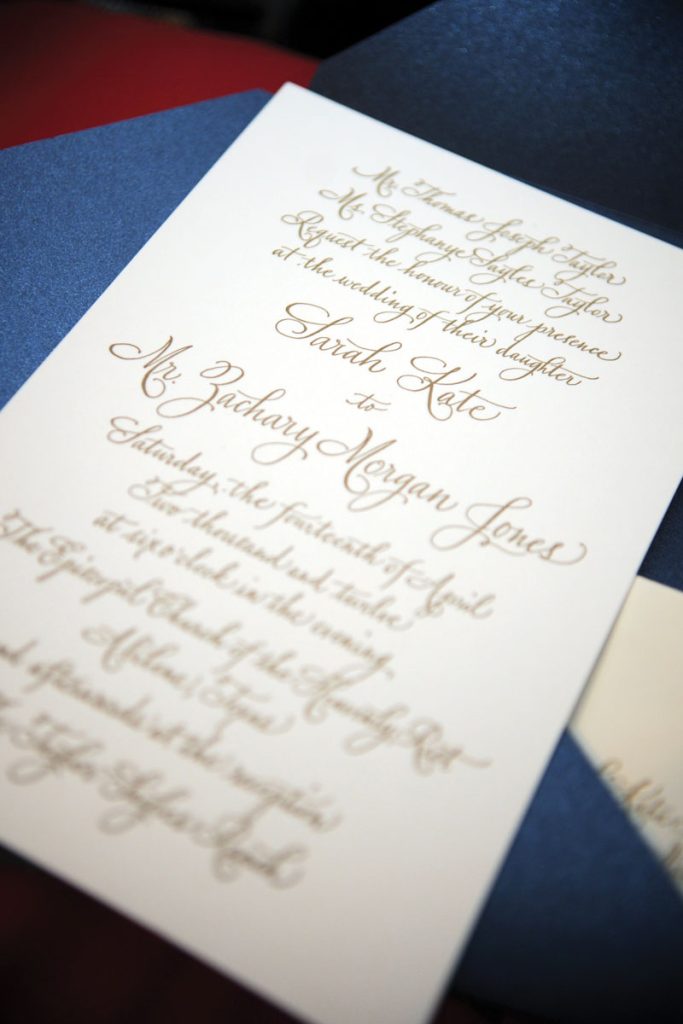 Mr. Thomas Joseph Taylor
Ms. Stephanye Sayles Taylor
Request the honour of your presence
at the wedding of their daughter
Sarah Kate
to
Mr. Zachary Morgan Jones
Saturday, the fourteenth of April
Two thousand and twelve
at six o'clock in the evening,
The Episcopal Church of the Heavenly Rest
Abilene, Texas
afterwards at the reception